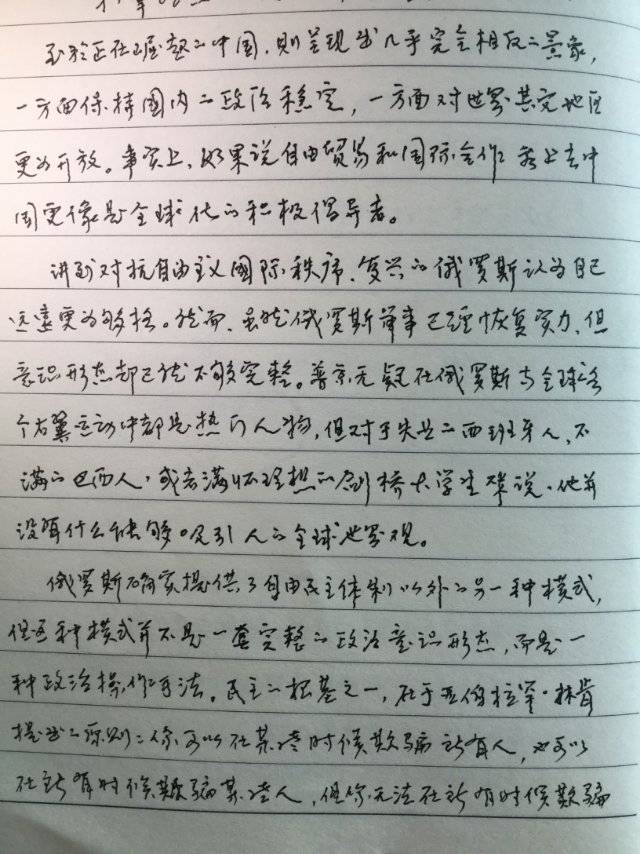 至于正在崛起的中国,则呈现出几乎完全相反的景象,
一方面保持国内的政治稳定,一方面对世界其它地区
更为开放。事实上,如果说自由贸易和国际合作 看上去中
国更像是全球化的积极倡导者。
讲到对抗自由主义国际秩序,复兴的俄罗斯认为自己
远远更为够格。然而,虽然俄罗斯军事已经恢复实力,但
意识形态却已然不够完整。普京无疑在俄罗斯与全球各
个右翼运动中都是热门人物,但对于失业的西班牙人、不
满的巴西人,或者满怀理想的剑桥大学生来说,他并
没有什么能够吸引人的全球世界观。
俄罗斯确实提供了自由民主体制以外的另一种模式,
但这种模式并不是一套完整的政治意识形态,而是一
种政治操作手法。民主的根基之一,在于亚伯拉罕·林肯
提出的原则:你可以在某些时候欺骗所有人,也可以
在所有时候欺骗某些人,但你无法在所有时候欺骗